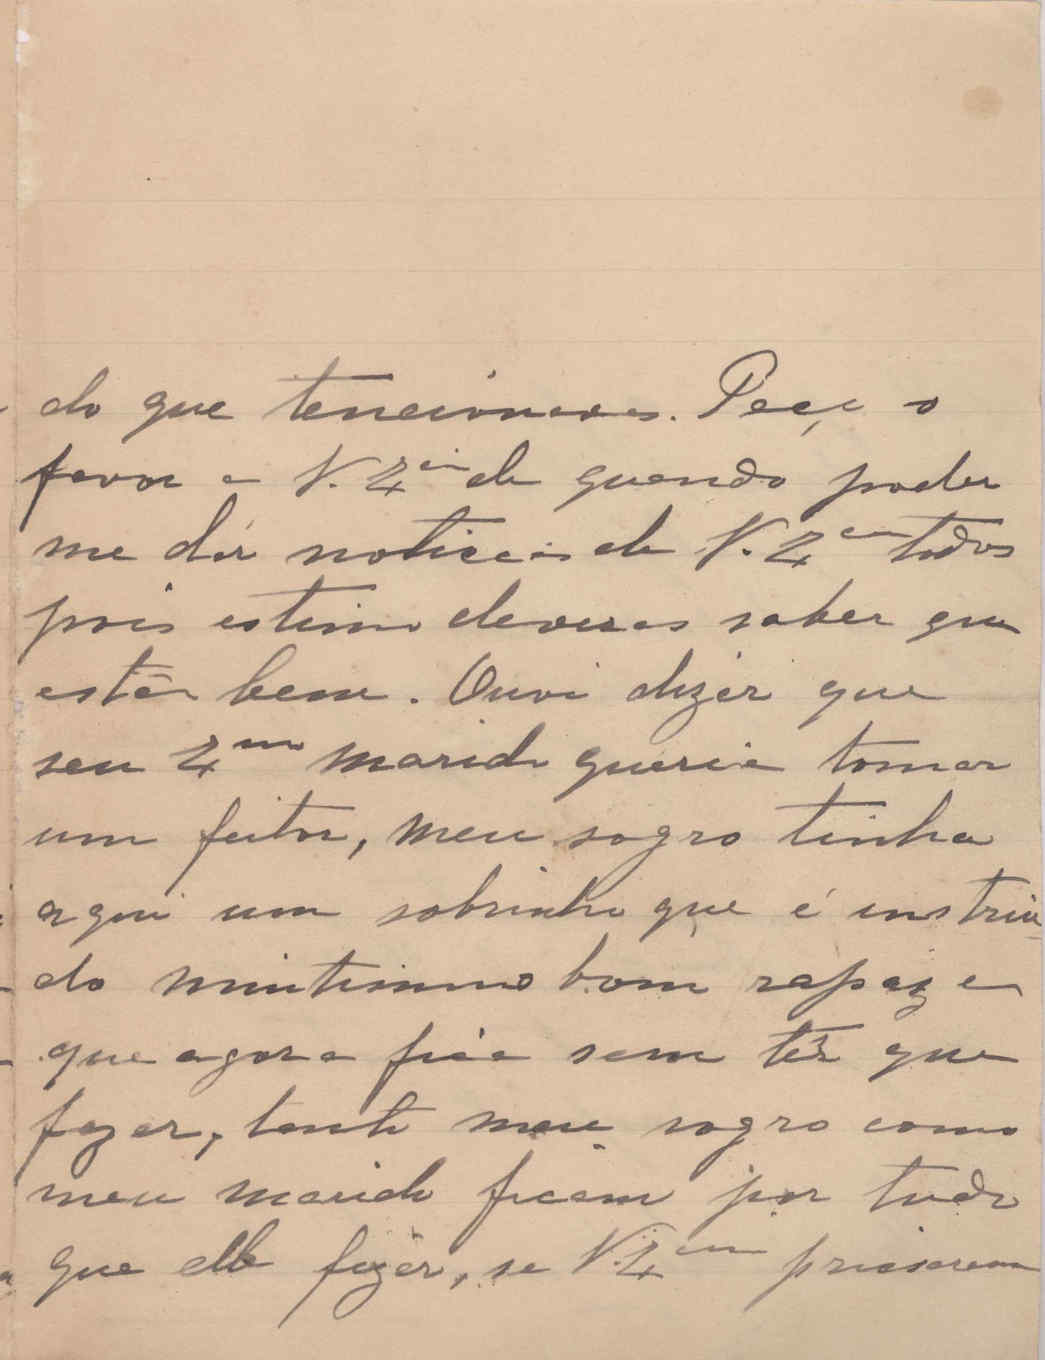 do que tencionavas. Peço o
favor a V. Exª de quando poder
me dár noticias de V. Exªs todos
pois estimo deveras saber que
estão bem. Ouvi dizer que
seu Exmo marido queria tomar
um feitor, meu sogro tinha
aqui um sobrinho que é instrui-
do muitissimo bom rapaz e
que agora fica sem têr que
fazer, tanto meu sogro como
meu marido ficam por tudo
que elle fizér, se V. Exªs precisarem